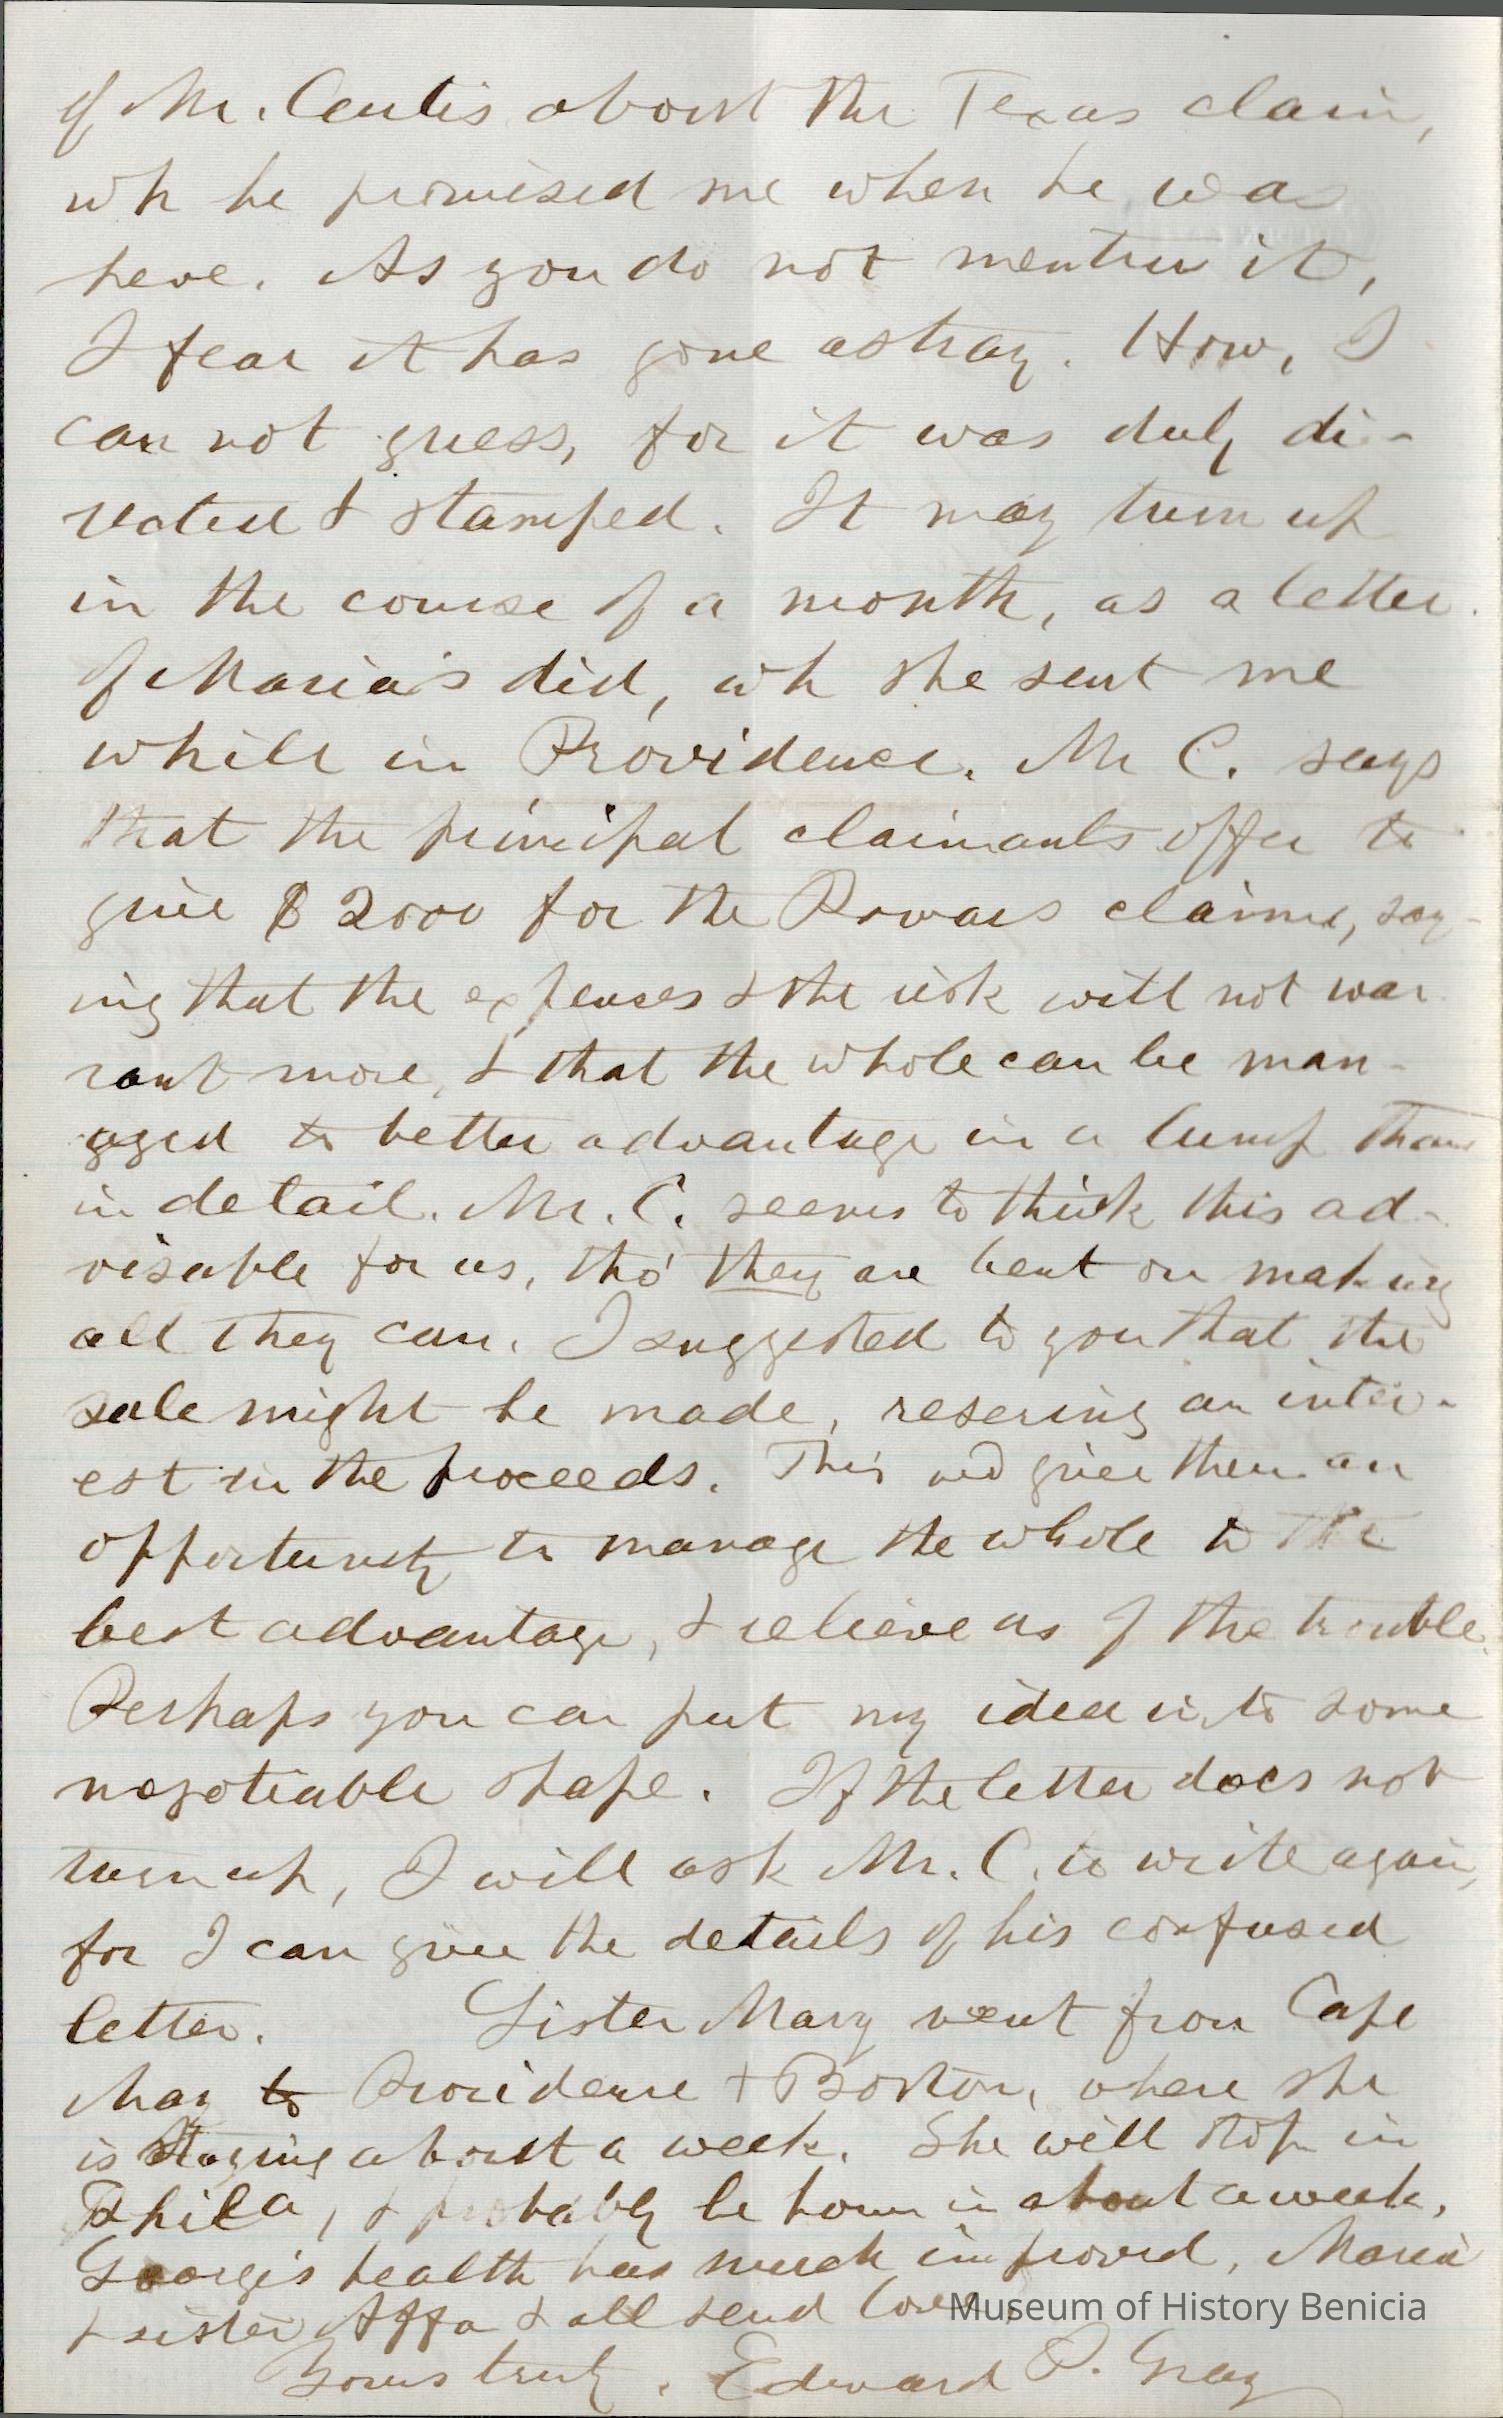 of Mr. Curtis about the Texas claim,
wh he promised me when he was
here. As you do not mention it,
I fear it has gone astray. How, I
can not guess, for it was duly di-
rected & stamped. It may turn up
in the course of a month, as a letter
of Maria's did, wh she sent me
while in Providence. Mr C. says
that the principal claimants offer to
give $2000 for the claims, say-
ing that the expenses & the risk will not war
rant more, & that the whole can be man-
aged to better advantage in a lump than
in detail. Mr. C. seems to think this ad-
visable for us, tho' they are bent on making
all they can. I suggested to you that the
sale might be made, resering an inter-
est in the proceeds. This wd give them an
opportunity to manage the whole to the
best advantage, & relieve us of the trouble.
Perhaps you can put my idea into some
negotiable shape. If the letter does not
turn up, I will ask Mr. C. to write again,
for I can give the details of his confused
letter. Sister Mary went from Cape
May to Providence + Boston, where she
is staying about a week. She will stop in
Phila, & probably be home in about a week.
George's health has much improved. Maria
& sister Affa & all send love.
Yours truly, Edward P. Gray
Museum of History Benicia